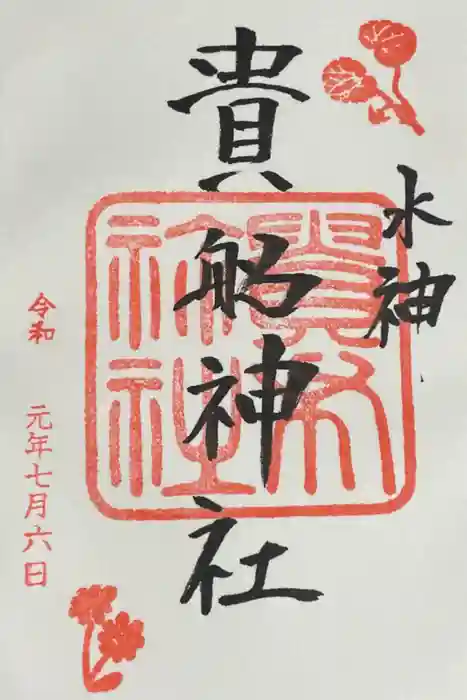 水神
貴船神社
貴布
祢社
令和 元年七月六日